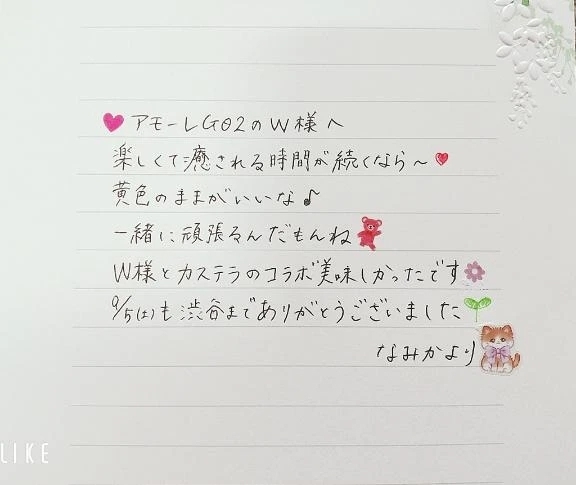 アモーレG02のW様へ
楽しくて癒される時間が続くなら〜
黄色のままがいいな♪
一緒に頑張るんだもんね
W様とカステラのコラボ美味しかったです
9/5(土)も渋谷までありがとうございました
なみかより
LIKE